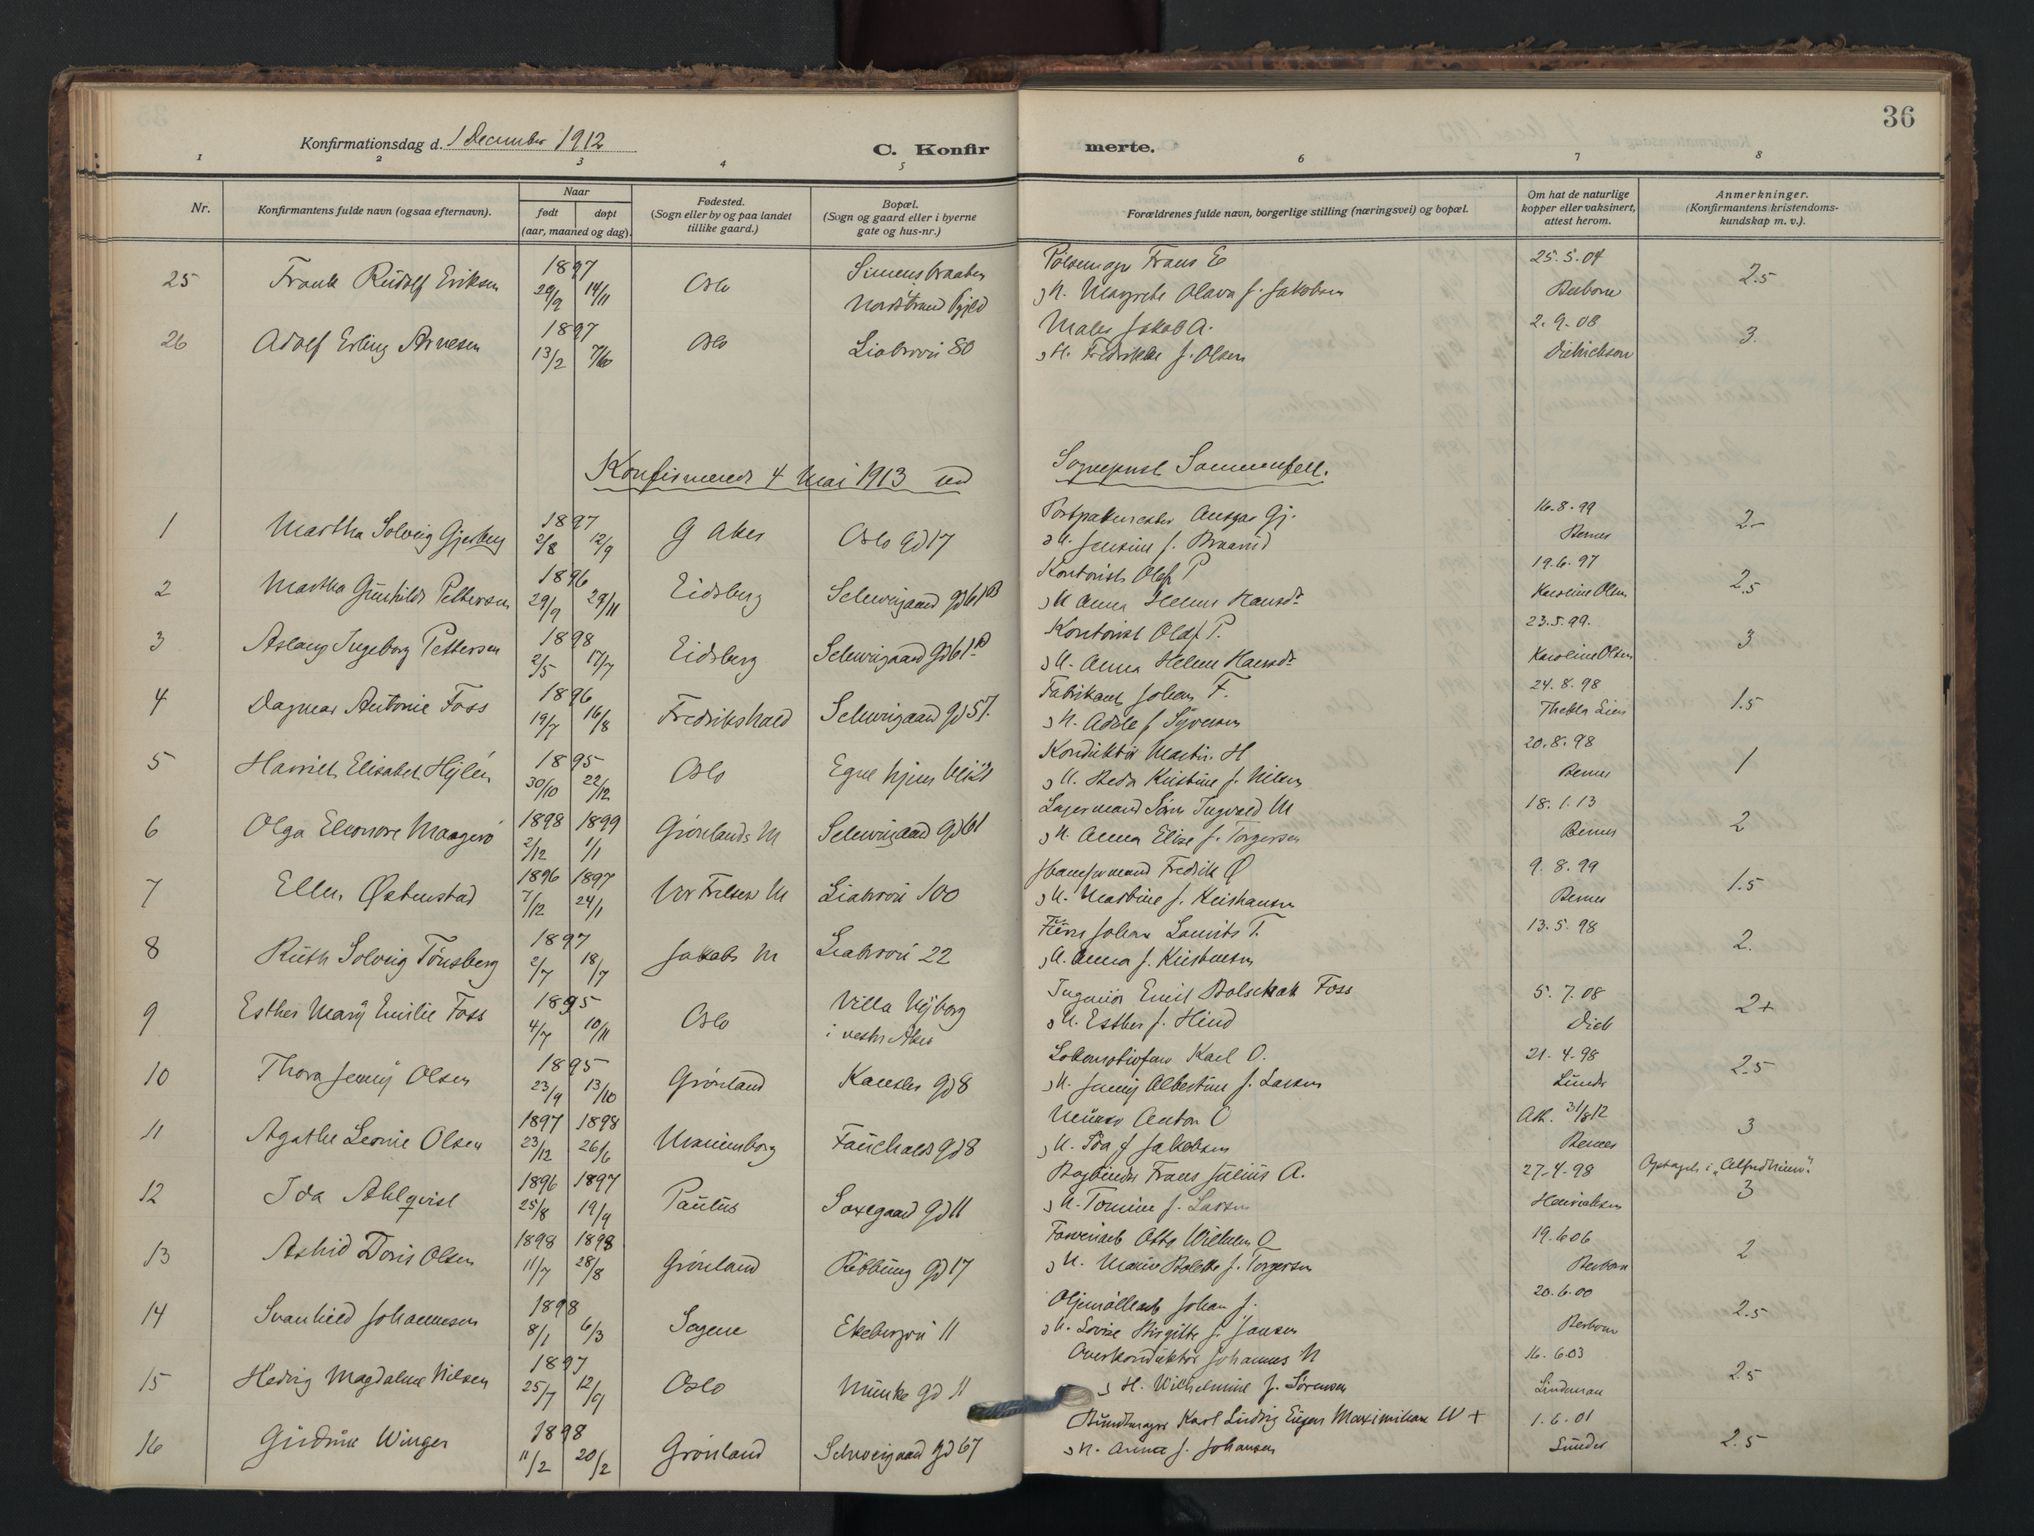 36
Konfirmationsdag d. 1 December 1912
C. Konfir
merte.
1 2 3 4 5 6 7 8
Nr.
Konfirmantens fulde navn (ogsaa efternavn).
Naar
født døpt
(aar, maaned og dag).
Fødested.
(Sogn eller by og paa landet
tillike gaard.)
Bopæl.
(Sogn og gaard eller i byerne
gate og hus-nr.)
Forældrenes fulde navn, borgerlige stilling (næringsvei) og bopæl.
Om hat de naturlige
kopper eller vaksinert,
attest herom.
Anmerkninger.
(Konfirmantens kristendoms-
kundskap m. v.).
25 Frank Rudolf Eriksen 1897 29/9 14/11 Oslo Simensbraaten
Nordstrand
Frans E
og H. Margrete Olava f. Jakobsen
25.5.04
2.5
26 Adolf Erling Arnesen 1897 13/2 7/6 Oslo Liabrovei 80
Maler Jakob A.
og H. Fredrikke f. Olsen
2.9.08
Didrichson
3
Konfirmerede 4 Mai 1913 ved Sogneprest Sommerfelt.
1 Martha Solveig Gjerberg 1897 2/8 12/9 G Aker Oslo gd 17
Ansgar Gj.
og H. Jensine f. Braarud
16.8.99
Berner
2-
2 Martha Gunhilde Pettersen 1896 29/9 29/11 Eidsberg Schweigaard gd 61 B
Kontorist Olaf P
og H Anna Helene Hansdr
19.6.97
Karoline Olsen
2.5
3 Aslaug Ingeborg Pettersen 1898 2/5 17/7 Eidsberg Schweigaard gd 61 B
Kontorist Olaf P.
og H. Anna Helene Hansdr
23.5.99.
Karoline Olsen
3
4 Dagmar Antonie Foss 1896 19/7 16/8 Fredrikshald Schweigaard gd 57.
Fabrikant Johan F.
og H. Adele f Syversen
24.8.98
Thekla Lien
1.5
5 Harriet Elisabet Hylén 1895 30/10 22/12 Oslo Egne hjem
Konduktør Martin H
og H. Beda Kristine f. Nilsen
20.8.98
Berner
1
6 Olga Eleonore Maagerø 1898 1899 2/12 1/1 Grønlands M Schweigaard gd 61
Lagermand Søren Ingvald M
og H. Anna Elise f. Torgersen
18.1.13
Berner
2
7 Ellen Østenstad 1896 1897 7/12 24/1 Vor Frelser M Liabrovei 100
Fredrik Ø
og H. Martine f. Kristiansen
9.8.99
Berner
1.5
8 Ruth Solveig Tønsberg 1897 2/7 18/7 Jakobs M Liabrovei 22
Johan Laurits T.
og H. Anna f. Kristiansen
13.5.98
2.
9 Esther Mary Emilie Foss 1895 4/7 10/11 Oslo Villa Nyborg
i vestre Aker
Ingeniør Emil Foss
og H. Esther f. Hind
5.7.08
Didr
2+
10 Thora Jenny Olsen 1895 23/9 13/10 Grønland Kansler gd 8
Karl O.
og H. Jenny Albertine f. Larsen
21.4.98
Lunder
2.5
11 Agathe Leonie Olsen 1897 1898 23/12 26/6 Fauchalds gd 8
Murer Anton O
og H. Ida f Jakobsen
Att. 31/8 12
Berner
3
12 Ida Ahlqvist 1896 1897 25/8 19/9 Paulus Saxegaard gd 11
Bogbinder Frans Julius A.
og H. Tomine f. Larsen
27.4.98
Henrichsen
Optaget i
3
13 Astrid Doris Olsen 1898 1898 11/7 28/8 Grønland Ribbung gd 17
Otto Wilhelm O
og H. Marie Bolette f. Torgersen
19.6 06
2
14 Svanhild Johannesen 1898 8/1 6/3 Sagene Ekebergvei 11
Johan J.
og H. Lovise Birgitte f. Jansen
20.6.00
2.5
15 Hedvig Magdalene Nilsen 1897 25/7 12/9 Oslo Munke gd 11
Overkonduktør Johannes N
og H. Wilhelmine f. Sørensen
16.6 03
Lindeman
2.5
16 Gudrun Winger 1898 11/2 20/2 Grønland Schweigaard gd 67
Buntmager Karl Ludvig Eugen Maximilian W +
og H. Anna f. Johansen
1.6.01
Lunder
2.5